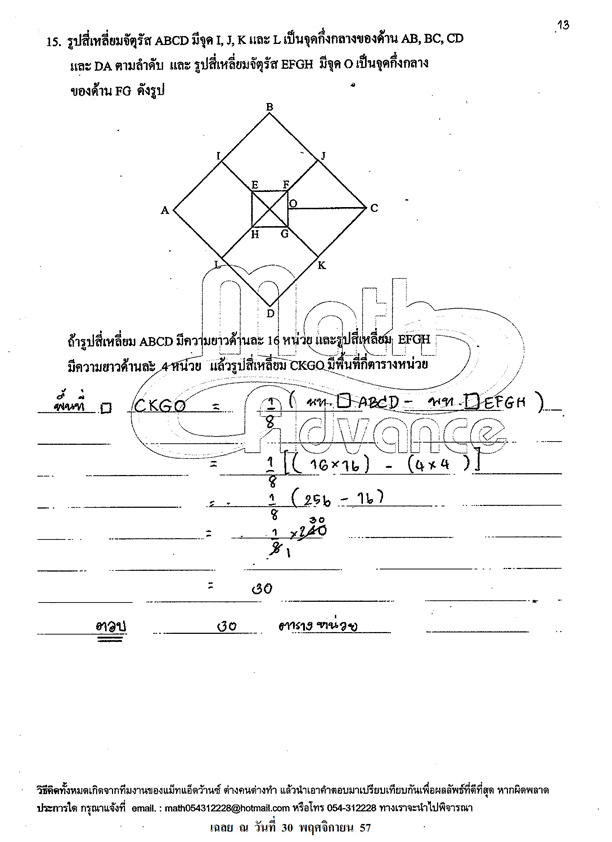 13
15. รูปสี่เหลี่ยมจัตุรัส ABCD มีจุด I, J, K และ L เป็นจุดกึ่งกลางของด้าน AB, BC, CD
และ DA ตามลำดับ และ รูปสี่เหลี่ยมจัตุรัส EFGH มีจุด O เป็นจุดกึ่งกลาง
ของด้าน FG ดังรูป
B
I J
E F
A O C
H G
L K
D
Math
ถ้ารูปสี่เหลี่ยม ABCD มีความยาวด้านละ 16 หน่วย และรูปสี่เหลี่ยม EFGH
มีความยาวด้านละ 4 หน่วย แล้วรูปสี่เหลี่ยม CKGO มีพื้นที่กี่ตารางหน่วย
พื้นที่ □ CKGO = 1/8 ( พท. □ ABCD - พท. □ EFGH )
Advance
= 1/8 [( 16 × 16 ) - ( 4 × 4 )]
= 1/8 ( 256 - 16 )
30
= 1/8 × 240
1
= 30
ตอบ 30 ตารางหน่วย
วิธีคิดทั้งหมดเกิดจากทีมงานของแม็ทแอ็ดว้านซ์ ต่างคนต่างทำ แล้วนำเอาคำตอบมาเปรียบเทียบกันเพื่อผลลัพธ์ที่ดีที่สุด หากผิดพลาด
ประการใด กรุณาแจ้งที่ email. : math054312228@hotmail.com หรือโทร 054-312228 ทางเราจะนำไปพิจารณา
เฉลย ณ วันที่ 30 พฤศจิกายน 57